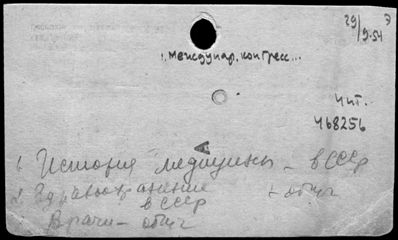 29/9-54 Э
1. Междунар. конгресс...
Чит.
468256
А
1. История медицины - в СССР
2. Здравоохранение в СССР + общ
Врачи - общ